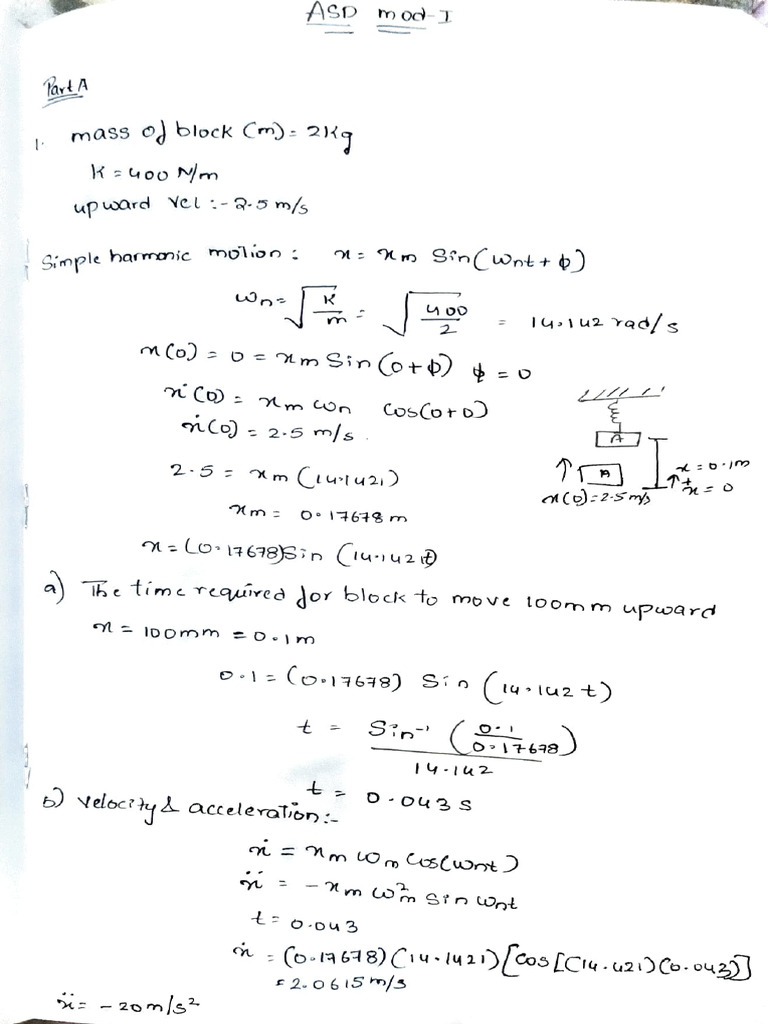 ASD mod-I
Part A
1. mass of block (m) = 2kg
K = 400 N/m
upward vel :- 2.5 m/s
Simple harmonic motion : x = xm Sin(ωnt + φ)
ωn = √(K/m) = √(400/2) = 14.142 rad/s
x(0) = 0 = xm Sin(0+φ) φ = 0
ẋ(0) = xm ωn cos(0+0)
ẋ(0) = 2.5 m/s.
A
A
x = 0.1m
+ x = 0
x(0) = 2.5 m/s
2.5 = xm (14.1421)
xm = 0.17678 m
x = (0.17678) Sin (14.142 t)
a) The time required for block to move 100mm upward
x = 100mm = 0.1m
0.1 = (0.17678) Sin (14.142 t)
t = Sin⁻¹ (0.1/0.17678) / 14.142
t = 0.043 s
b) velocity & acceleration :-
ẋ = xm ωm cos(ωnt)
ẍ = - xm ω²m sin ωnt
t = 0.043
ẋ = (0.17678) (14.1421) [cos [(14.421) (0.043)]
= 2.0615 m/s
ẍ = - 20 m/s²